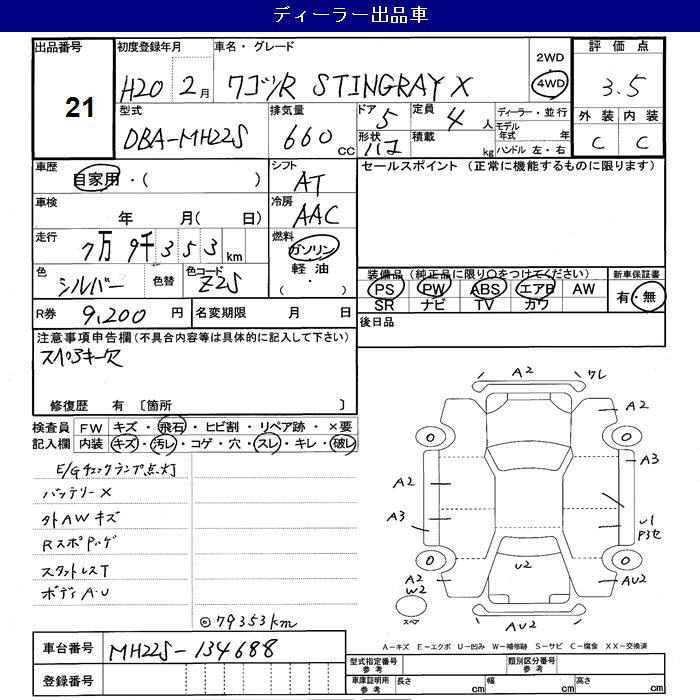 ディーラー出品車
出品番号
21
初度登録年月
H20 2月
車名・グレード
ワゴンR STINGRAY X
2WD
4WD
評価点
3.5
型式
DBA-MH22S
排気量
660 cc
ドア
5
定員
4 人
形状
ハコ
積載
kg
ディーラー・並行
モデル年式 年
ハンドル 左・右
外装 内装
C C
車歴
自家用・( )
シフト
AT
セールスポイント (正常に機能するものに限ります)
車検
年 月( 日)
冷房
AAC
走行
7万9千353 km
燃料
ガソリン
軽油
・
( )
色
シルバー
色替
色コード
Z2S
装備品 (純正品に限り○をつけてください)
PS PW ABS エアB AW
SR ナビ TV カワ
新車保証書
有・無
R券 9,200 円
名変期限 月 日
後日品
注意事項申告欄(不具合内容等は具体的に記入して下さい)
スペアキー欠
修復歴 有 〔箇所 〕
検査員
記入欄
FW キズ・飛石・ヒビ割・リペア跡・×要
内装 キズ・汚レ・コゲ・穴・スレ・キレ・破レ
E/Gチェックランプ点灯
バッテリーX
外AWキズ
スタットレスT
ボディA・U
◎79353km
A2 ワレ
A2
A3
A2
A3
U1
U2
A2
W2
AU2
スペア
AU2
A-キズ E-エクボ U-凹み W-補修跡 S-サビ C-腐食 XX-交換済
車台番号
MH22S-134688
登録番号
型式指定番号
参考
類別区分番号
参考
車庫証明用
参考
長さ cm
幅 cm
高さ cm